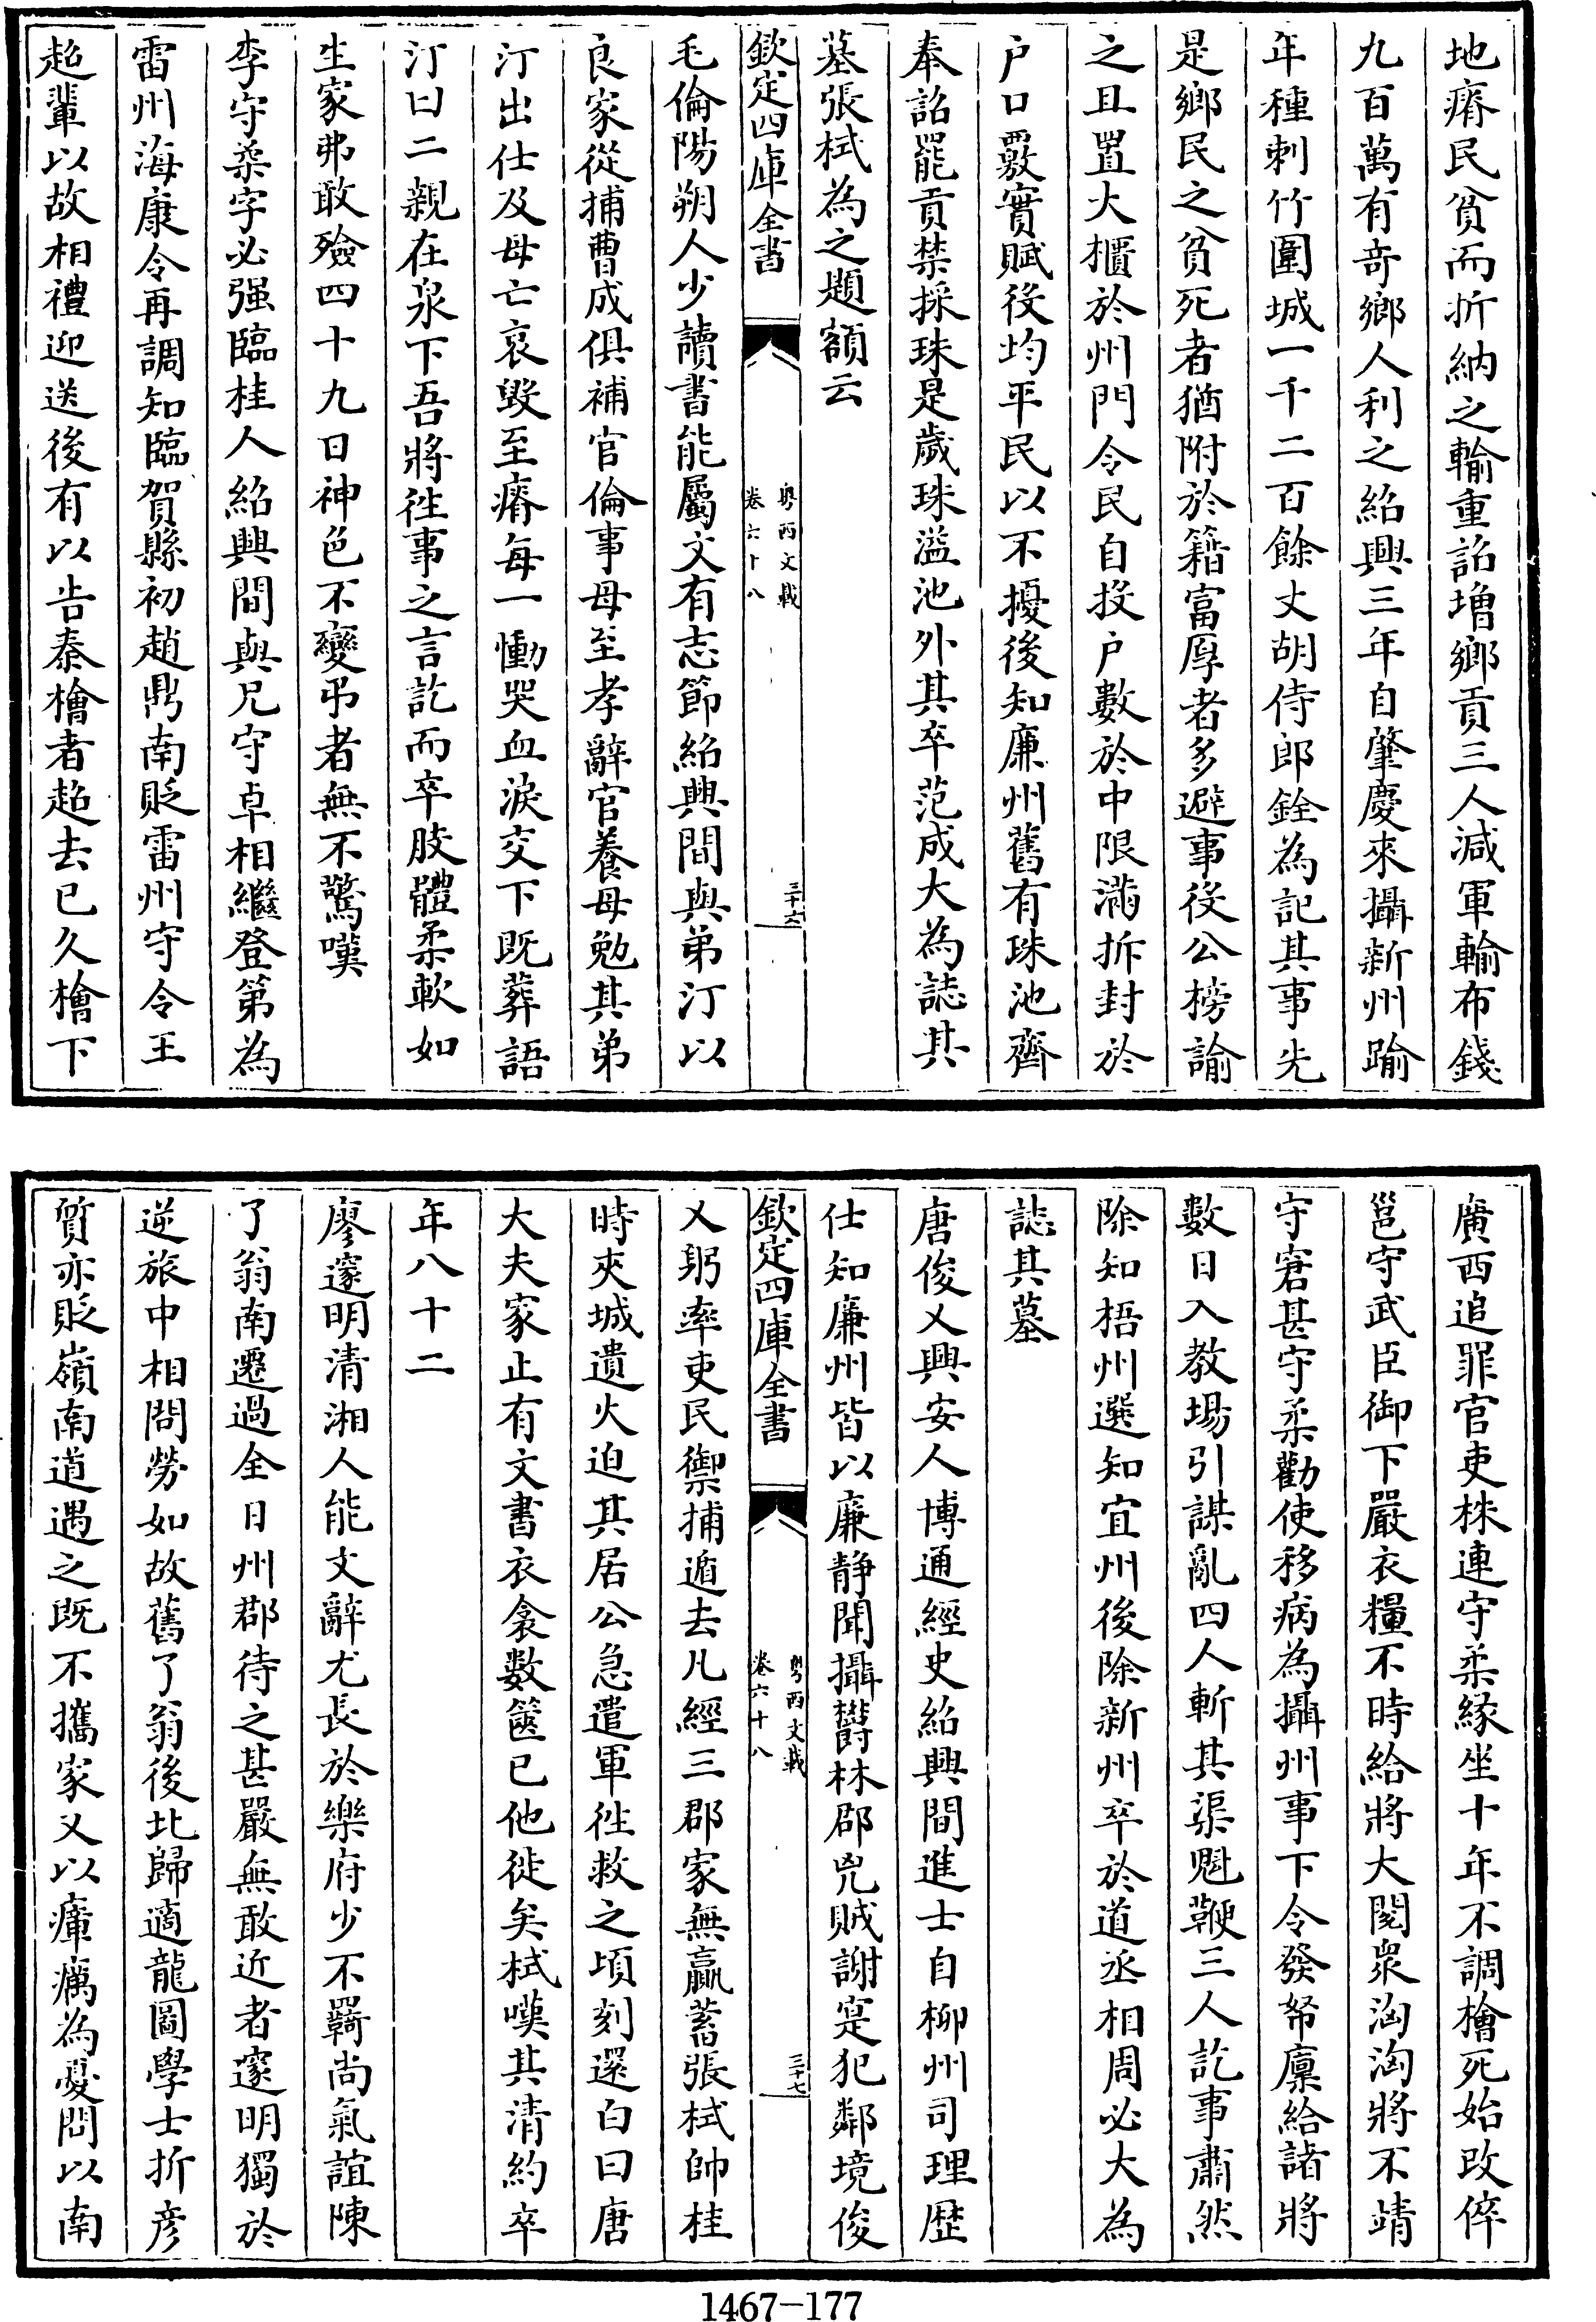 地瘠民貧而折納之輸重詔増鄉貢三人減軍輸布錢
九百萬有奇鄉人利之紹興三年自肇慶來攝新州踰
年種刺竹圍城一千二百餘丈胡侍郎銓為記其事先
是鄉民之貧死者猶附於籍富厚者多避事役公榜諭
之且置大櫃於州門令民自投户數於中限滿拆封於
户口覈實賦役均平民以不擾後知廉州舊有珠池齊
奉詔罷貢禁採珠是歲珠溢池外其卒范成大為誌其
墓張栻為之題額云
欽定四庫全書
粤西文載
卷六十八
三十六
毛倫陽朔人少讀書能屬文有志節紹興間與弟汀以
良家從捕曹成俱補官倫事母至孝辭官養母勉其弟
汀出仕及母亡哀毀至瘠每一慟哭血淚交下既葬語
汀曰二親在泉下吾將往事之言訖而卒肢體柔軟如
生家弗敢殮四十九日神色不變弔者無不驚嘆
李守柔字必强臨桂人紹興間與兄守卓相繼登第為
雷州海康令再調知臨賀縣初趙鼎南貶雷州守令王
趂輩以故相禮迎送後有以告秦檜者趂去已久檜下
廣西追罪官吏株連守柔緣坐十年不調檜死始改倅
邕守武臣御下嚴衣糧不時給將大閱衆洶洶將不靖
守窘甚守柔勸使移病為攝州事下令發帑廪給諸將
數日入教場引謀亂四人斬其渠魁鞭三人訖事肅然
除知梧州選知宜州後除新州卒於道丞相周必大為
誌其墓
唐俊乂興安人博通經史紹興間進士自柳州司理歴
仕知廉州皆以廉静聞攝欝林郡兇賊謝寔犯鄰境俊
乂躬率吏民禦捕遁去凡經三郡家無贏蓄張栻帥桂
時夾城遺火迫其居公急遣軍往救之頃刻還白曰唐
大夫家止有文書衣衾數篋已他徙矣栻嘆其清約卒
年八十二
欽定四庫全書
粤西文載
卷六十八
三十七
廖邃明清湘人能文辭尤長於樂府少不羈尚氣誼陳
了翁南遷過全日州郡待之甚嚴無敢近者邃明獨於
逆旅中相問勞如故舊了翁後北歸適龍圖學士折彦
質亦貶嶺南道遇之既不攜家又以瘴癘為憂問以南
1467-177